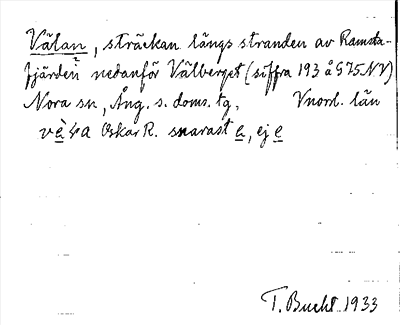 Välan, sträckan längs stranden av Ramsta-
fjärden nedanför Välberget (siffra 193 å G75NV)
Nora sn, Ång. s. doms. tg, Vnorl. län
Oskar R. snarast e, ej e
T. Bucht 1933